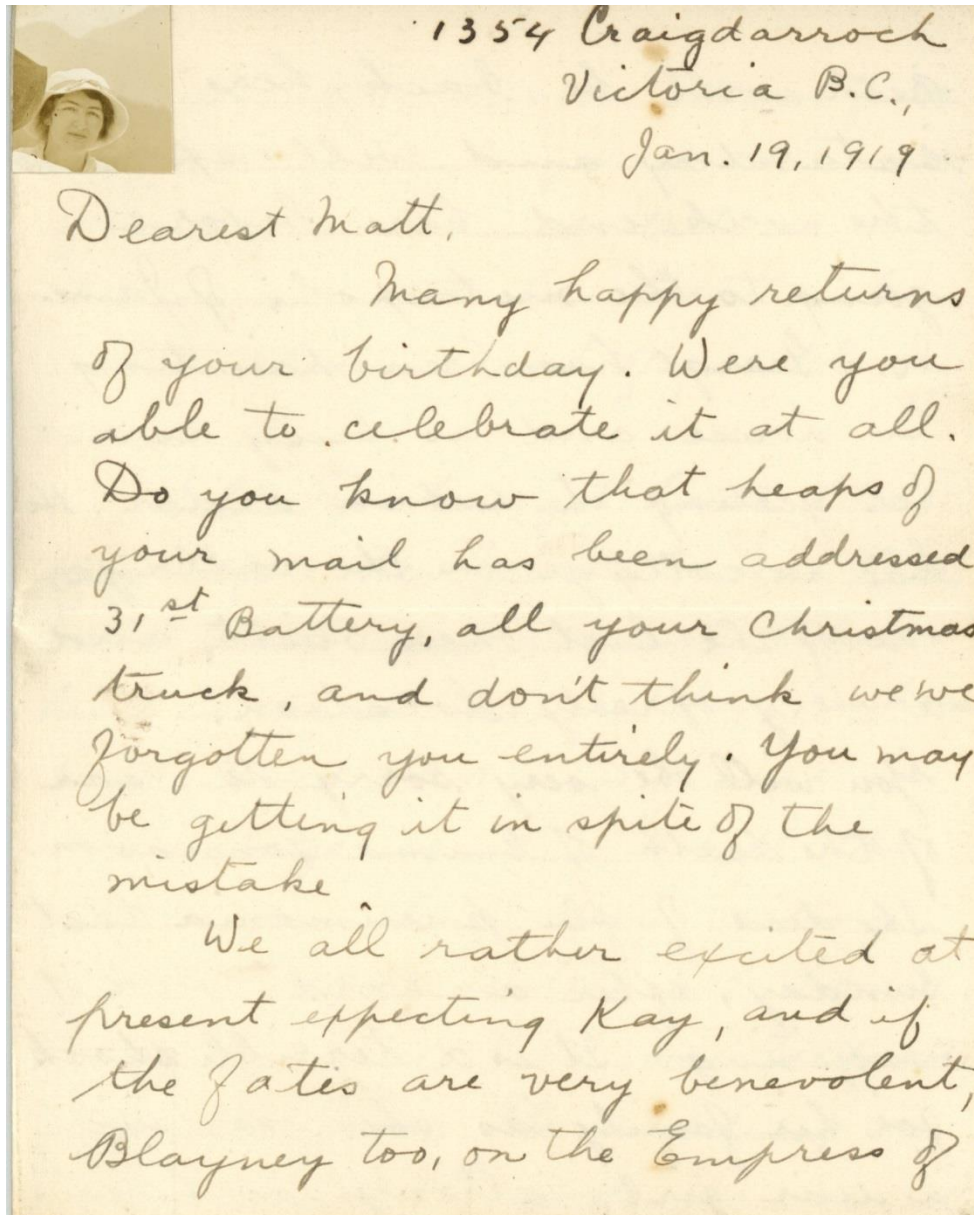 1354 Craigdarroch
Victoria B.C.,
Jan. 19, 1919
Dearest Matt,
Many happy returns
of your birthday. Were you
able to celebrate it at all.
Do you know that heaps of
your mail has been addressed
31st Battery, all your Christmas
truck, and don't think we've
forgotten you entirely. You may
be getting it in spite of the
mistake
We all rather excited at
present expecting Kay, and if
the fates are very benevolent,
Blayney too, on the Empress of